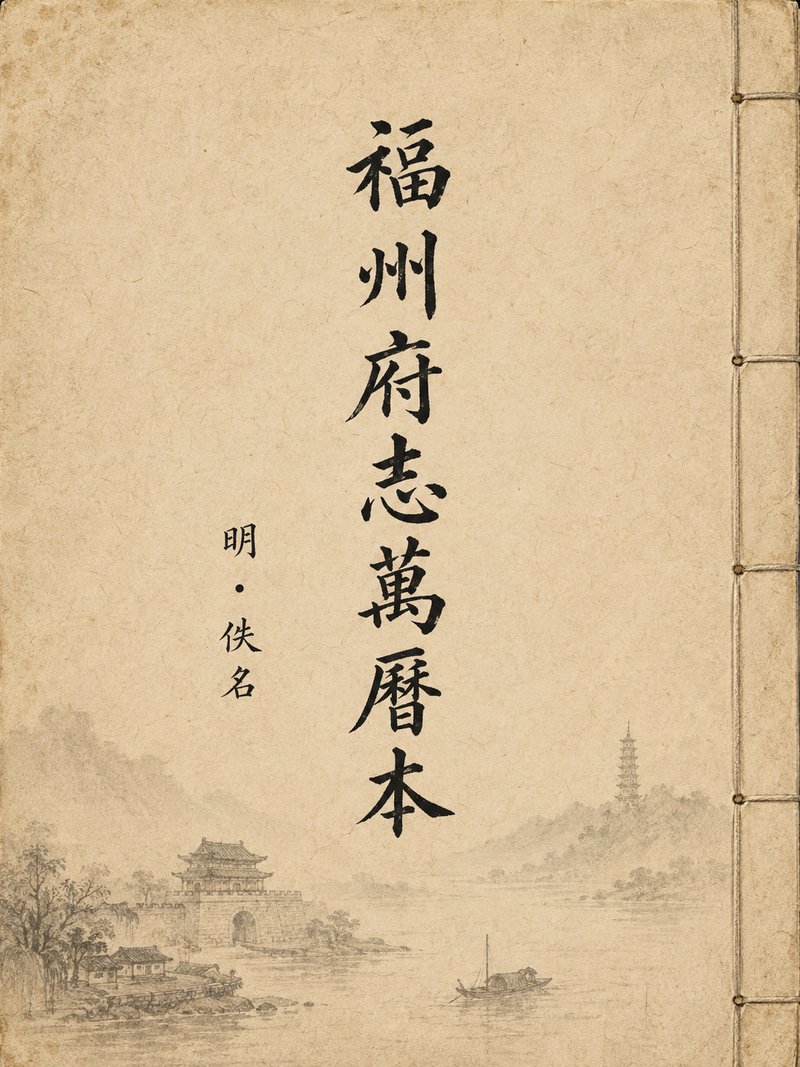 福州府志萬曆本
明·佚名